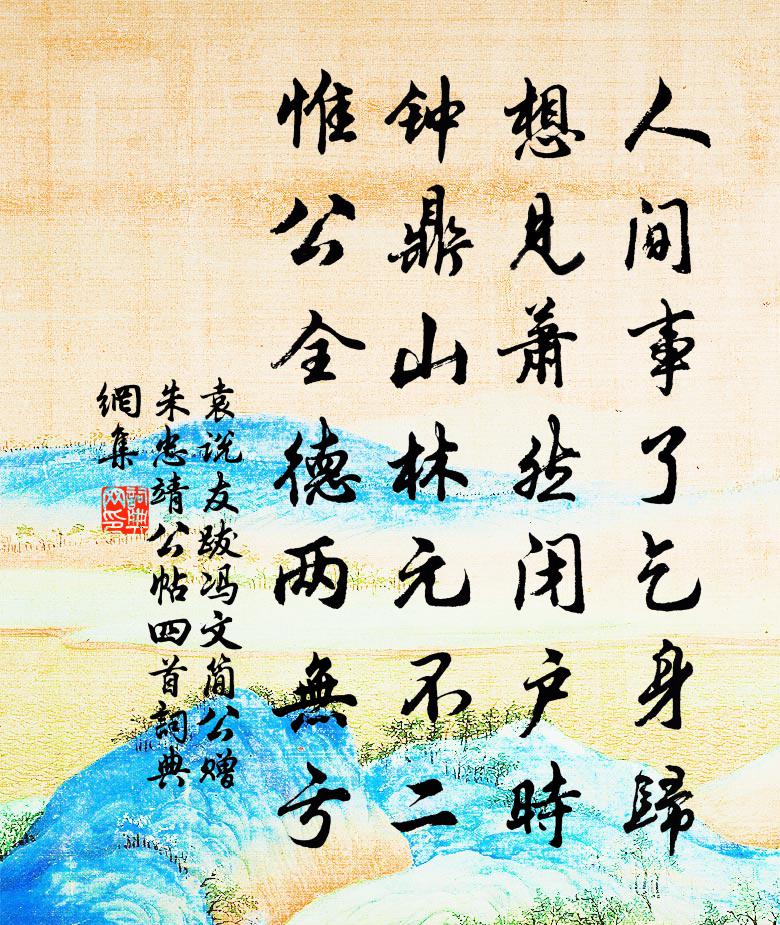 人间事了乞身歸
想見萧然闭户時
钟鼎山林元不二
惟公全德两無亏
袁说友跋冯文简公赠
朱忠靖公帖四首詞典
網集
詞典网印